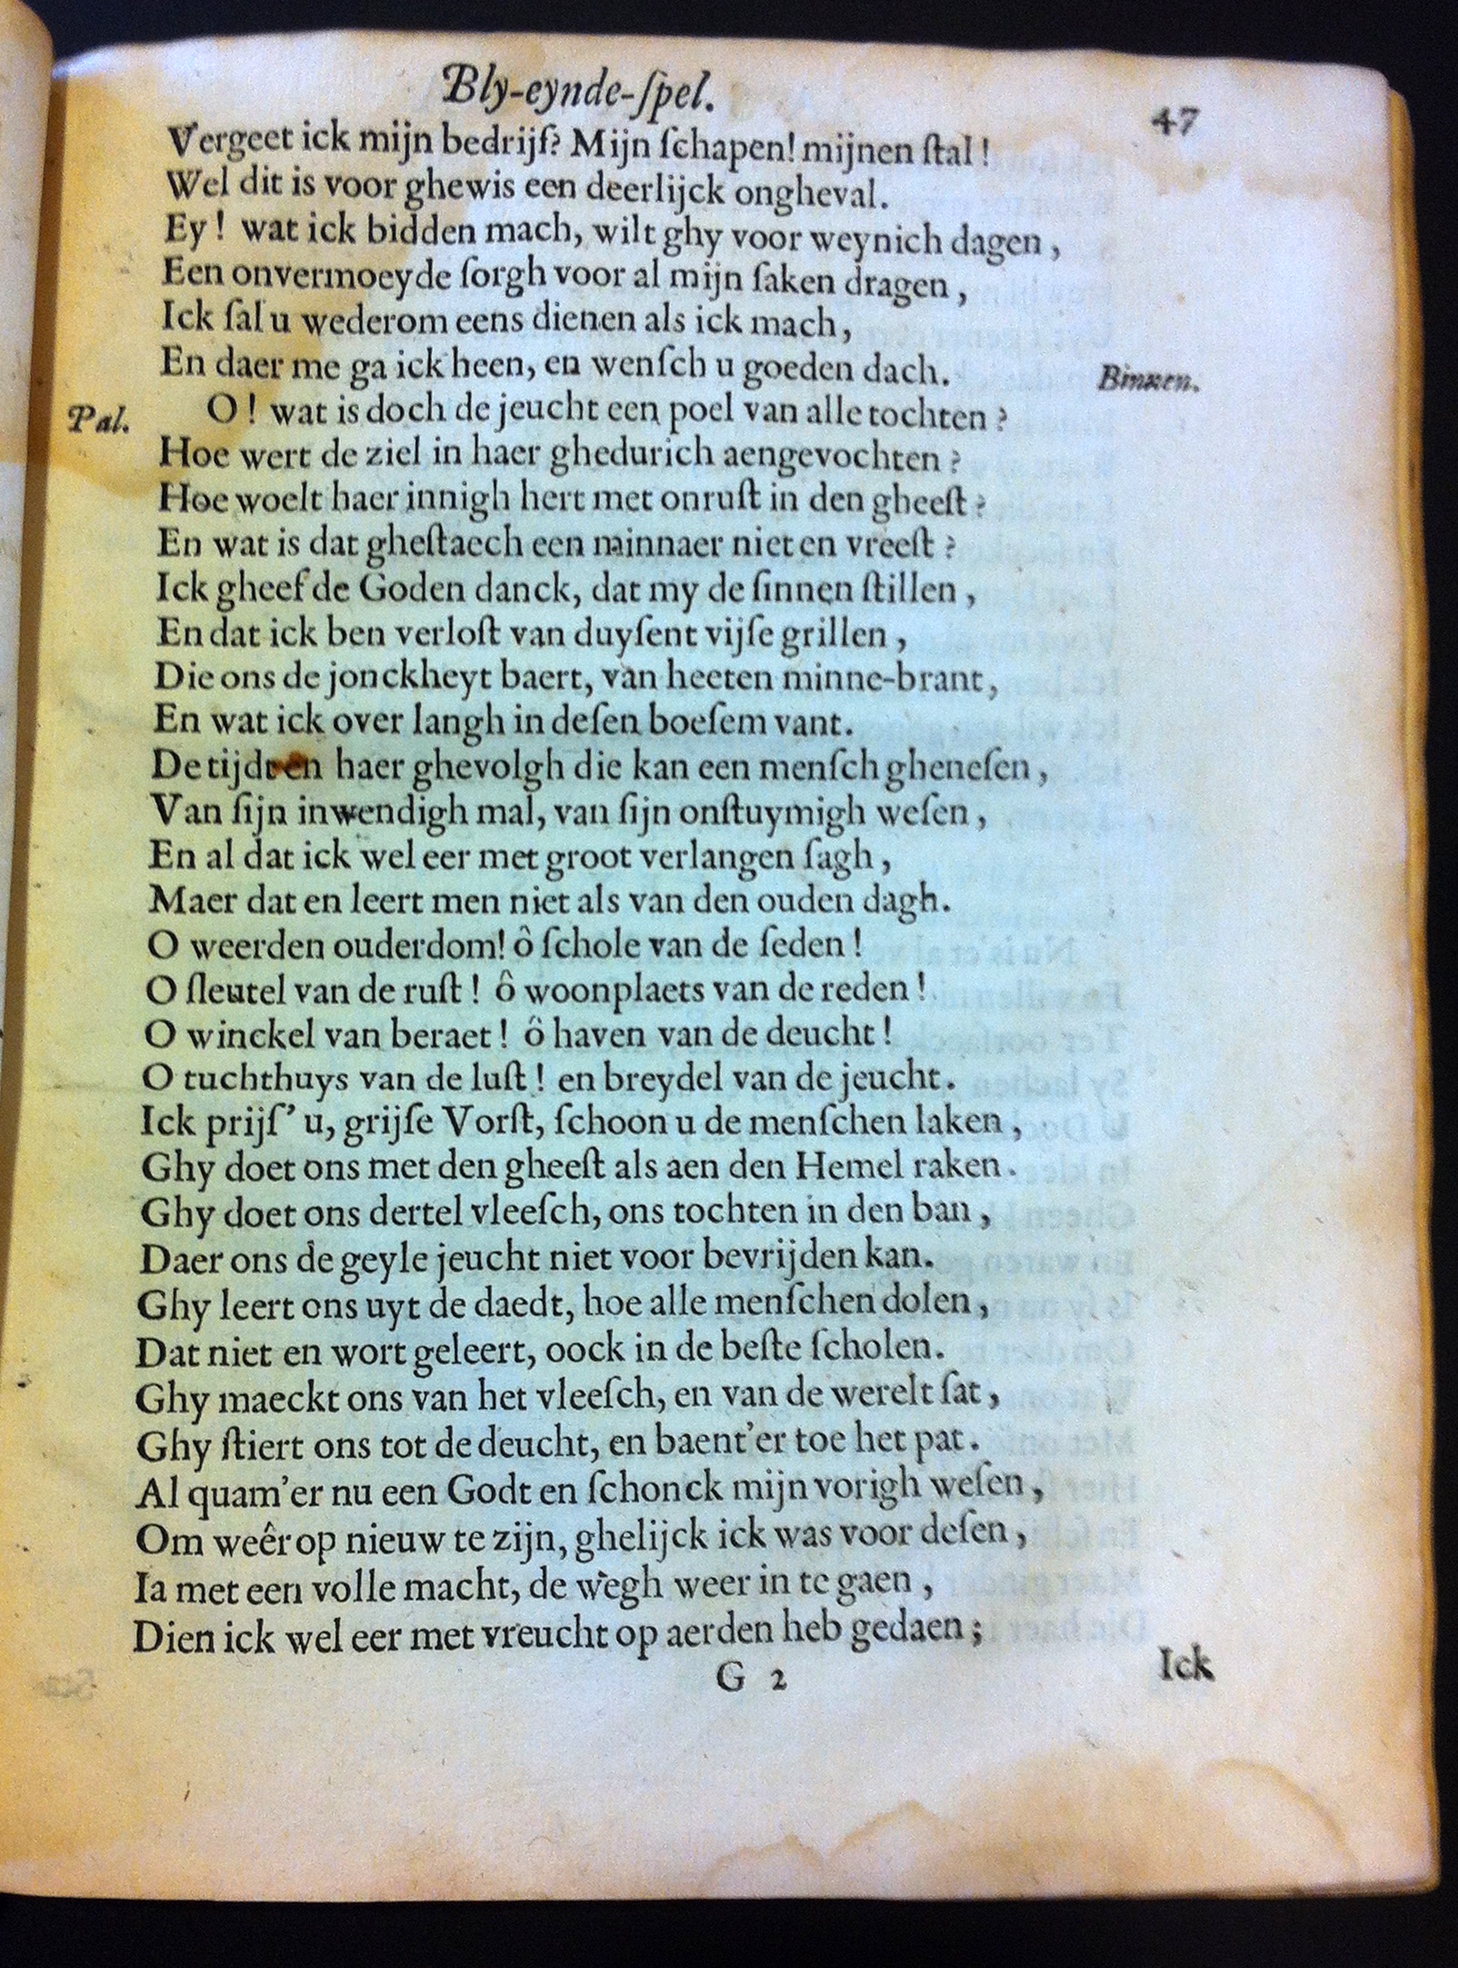 Bly-eynde-ſpel.
47
Vergeet ick mijn bedrijf? Mijn ſchapen! mijnen ſtal!
Wel dit is voor ghewis een deerlijck ongheval.
Ey! wat ick bidden mach, wilt ghy voor weynich dagen,
Een onvermoeyde ſorgh voor al mijn ſaken dragen,
Ick ſal u wederom eens dienen als ick mach,
En daer me ga ick heen, en wenſch u goeden dach. Binnen.
Pal. O! wat is doch de jeucht een poel van alle tochten?
Hoe wert de ziel in haer ghedurich aengevochten?
Hoe woelt haer innigh hert met onruſt in den gheeſt?
En wat is dat gheſtaech een minnaer niet en vreeſt?
Ick gheef de Goden danck, dat my de ſinnen ſtillen,
En dat ick ben verloſt van duyſent vijſe grillen,
Die ons de jonckheyt baert, van heeten minne-brant,
En wat ick over langh in deſen boeſem vant.
De tijdt en haer ghevolgh die kan een menſch gheneſen,
Van ſijn inwendigh mal, van ſijn onſtuymigh weſen,
En al dat ick wel eer met groot verlangen ſagh,
Maer dat en leert men niet als van den ouden dagh.
O weerden ouderdom! ô ſchole van de ſeden!
O ſleutel van de ruſt! ô woonplaets van de reden!
O winckel van beraet! ô haven van de deucht!
O tuchthuys van de luſt! en breydel van de jeucht.
Ick prijſ' u, grijſe Vorſt, ſchoon u de menſchen laken,
Ghy doet ons met den gheeſt als aen den Hemel raken.
Ghy doet ons dertel vleeſch, ons tochten in den ban,
Daer ons de geyle jeucht niet voor bevrijden kan.
Ghy leert ons uyt de daedt, hoe alle menſchen dolen,
Dat niet en wort geleert, oock in de beſte ſcholen.
Ghy maeckt ons van het vleeſch, en van de werelt ſat,
Ghy ſtiert ons tot de deucht, en baent'er toe het pat.
Al quam'er nu een Godt en ſchonck mijn vorigh weſen,
Om weêr op nieuw te zijn, ghelijck ick was voor deſen,
Ia met een volle macht, de wegh weer in te gaen,
Dien ick wel eer met vreucht op aerden heb gedaen;
G 2
Ick